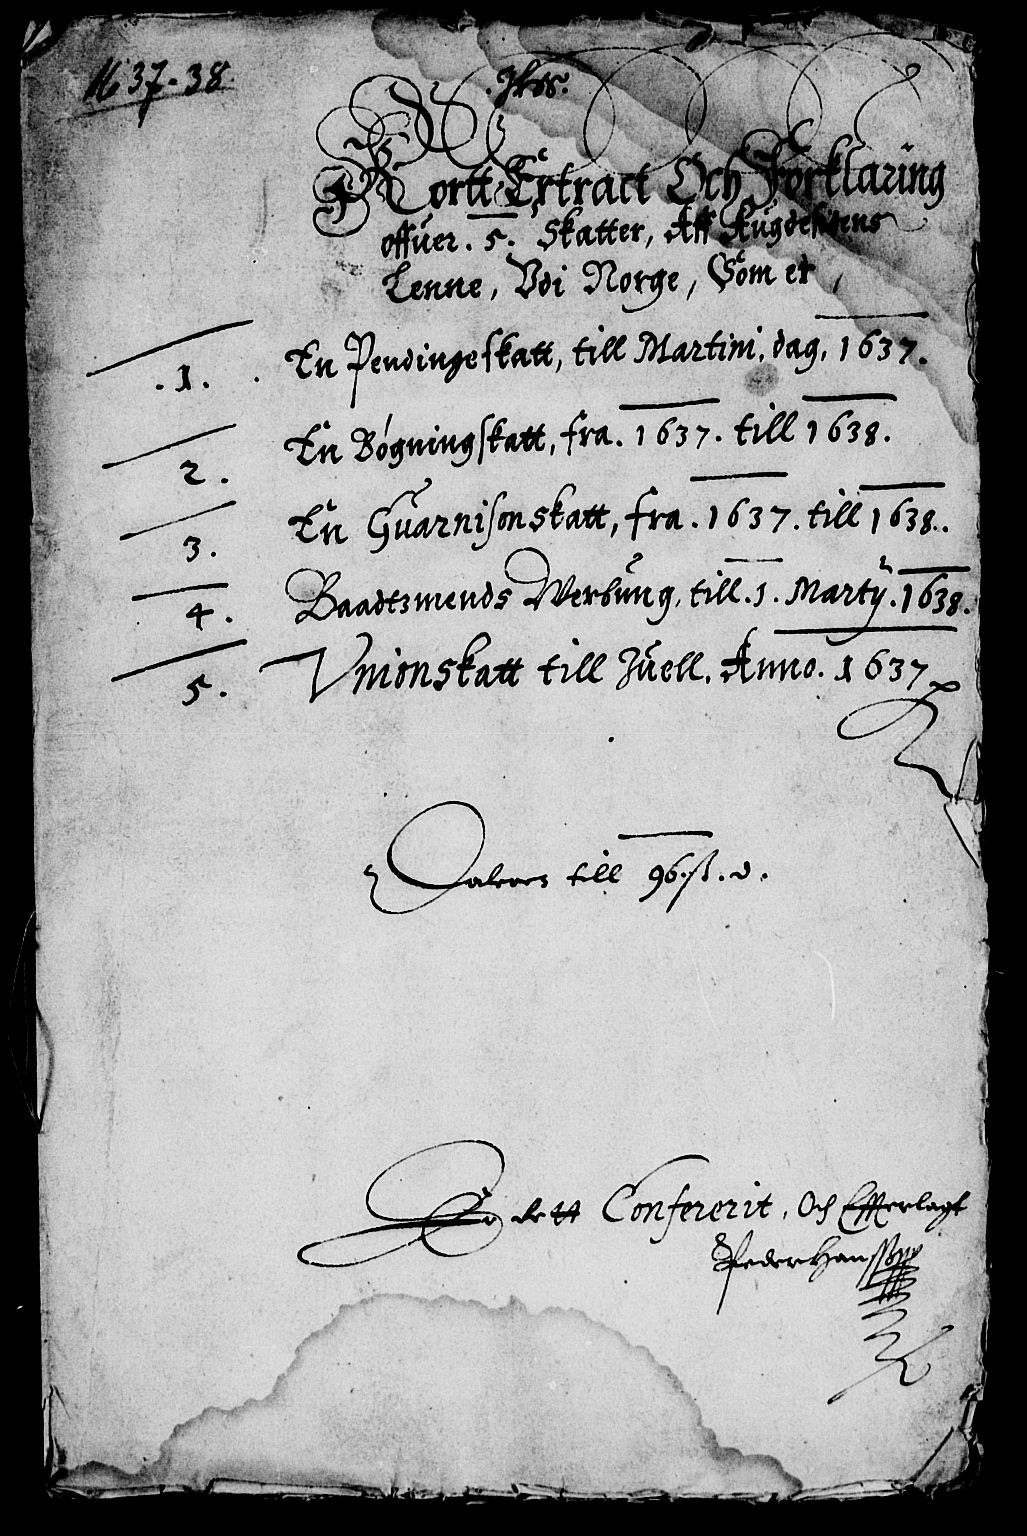 1637-38.
Kortt Extract Och Forklaring
offuer. 5. Skatter, Aff Augdesidens
Lenne, Vdi Norge, Som er,
.1. En Pendingeskatt, till Martini, dag, 1637.
2. En Bøgningskatt, fra. 1637. till 1638.
3. En Guarnisonskatt, fra. 1637. till 1638.
4. Baadtzmends Werbung, till. 1. Martij. 1638.
5. Vnionskatt till Juell. Anno. 1637
Daleren till 96. ß. d.
Er dett Confererit, Och Efferlagt
Peder Hanssøn